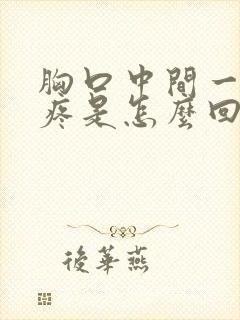 胸口中間一
疼是怎麼回
後華燕